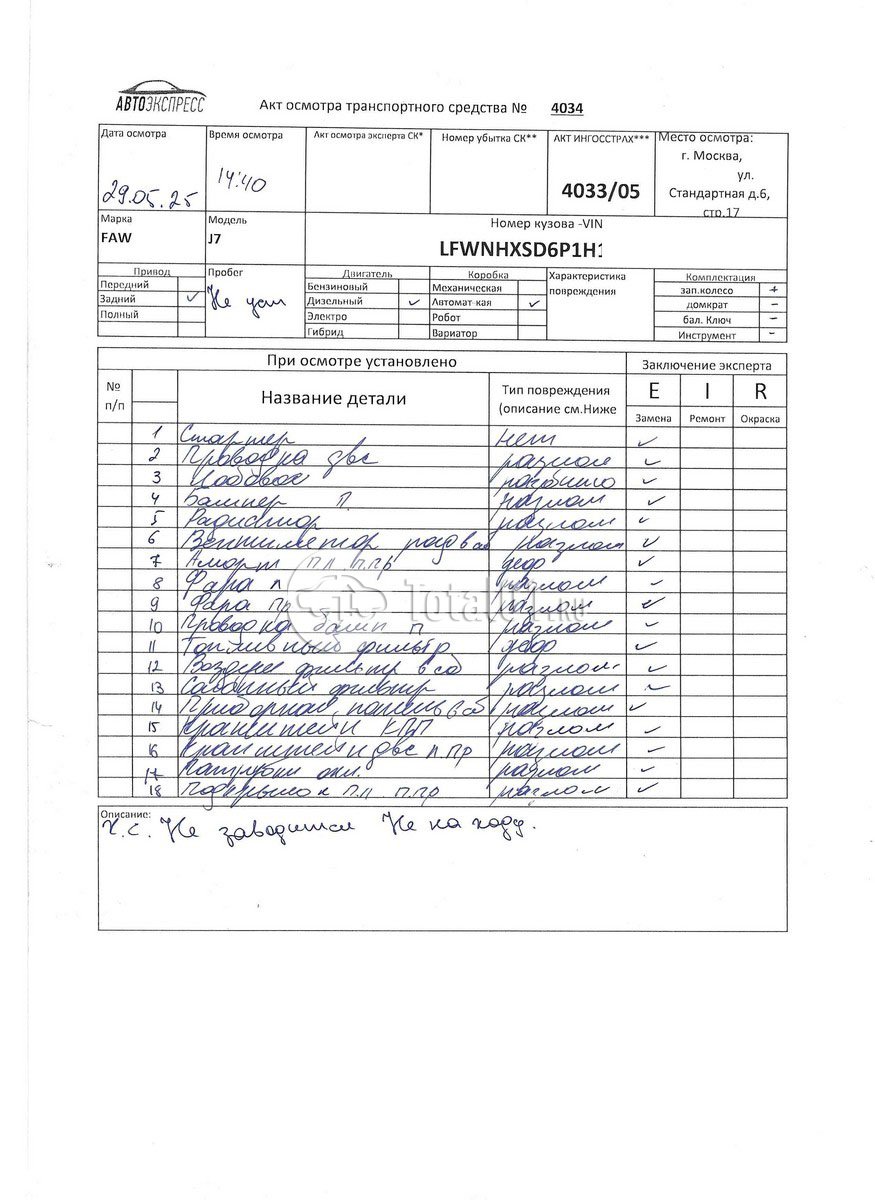 АВТОЭКСПРЕСС
Акт осмотра транспортного средства № 4034
Дата осмотра
29.05.25
Время осмотра
14:40
Акт осмотра эксперта СК*
Номер убытка СК**
АКТ ИНГОССТРАХ***
4033/05
Место осмотра:
г. Москва,
ул.
Стандартная д.6,
стр.17
Марка
FAW
Модель
J7
Номер кузова -VIN
LFWNHXSD6P1H1
Привод
Передний
Задний ✓
Полный
Пробег
Не уст
Двигатель
Бензиновый
Дизельный ✓
Электро
Гибрид
Коробка
Механическая
Автомат-кая ✓
Робот
Вариатор
Характеристика
повреждения
Комплектация
зап.колесо +
домкрат –
бал. Ключ –
Инструмент -
При осмотре установлено
Заключение эксперта
№
п/п
Название детали
Тип повреждения
(описание см.Ниже
E I R
Замена Ремонт Окраска
1 Стартер нет ✓
2 Проводка двс разлом ✓
3 ✓
4 Бампер П. разлом ✓
5 Радиатор разлом ✓
6 Вентилятор разлом ✓
7 Аморт п.л п.пр деф ✓
8 Фара л разлом ✓
9 Фара пр разлом ✓
10 Проводка бамп п разлом ✓
11 Топливный фильтр деф ✓
12 фильтр в сб разлом ✓
13 Салонный фильтр разлом ✓
14 Приборная панель в сб разлом ✓
15 Кранштейн КПП разлом ✓
16 двс л пр разлом ✓
17 Патрубки охл. разлом ✓
18 Подкрылок п.л п.пр разлом ✓
TOTAL01.RU
Описание:
Х.С. Не заводится Не на ходу.